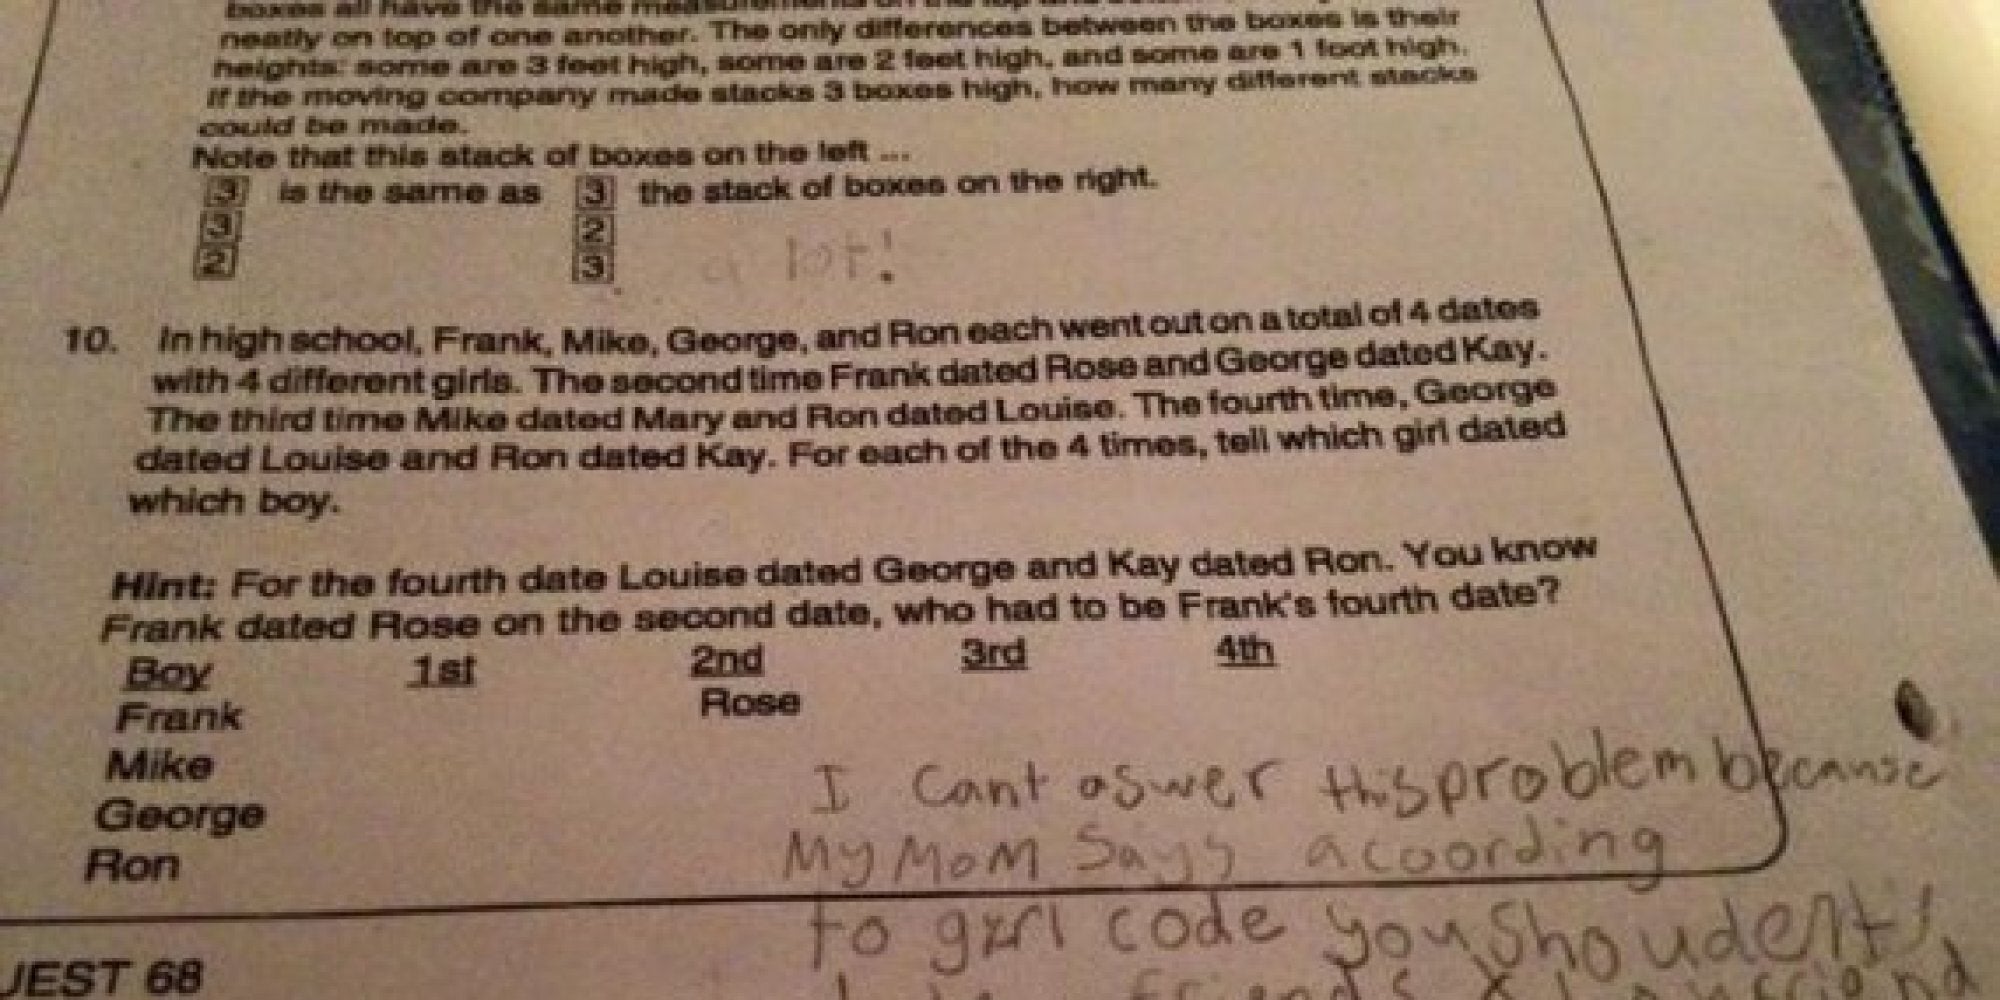 boxes all have the same measurements on the top and
neatly on top of one another. The only differences between the boxes is their
heights: some are 3 feet high, some are 2 feet high, and some are 1 foot high.
If the moving company made stacks 3 boxes high, how many different stacks
could be made.
Note that this stack of boxes on the left ...
3 is the same as 3 the stack of boxes on the right.
3 2
2 3 a lot!
10. In high school, Frank, Mike, George, and Ron each went out on a total of 4 dates
with 4 different girls. The second time Frank dated Rose and George dated Kay.
The third time Mike dated Mary and Ron dated Louise. The fourth time, George
dated Louise and Ron dated Kay. For each of the 4 times, tell which girl dated
which boy.
Hint: For the fourth date Louise dated George and Kay dated Ron. You know
Frank dated Rose on the second date, who had to be Frank's fourth date?
Boy 1st 2nd 3rd 4th
Frank Rose
Mike
George
Ron
I cant aswer this problem because
My MoM Says acoording
to girl code you shoudent
friends
UEST 68